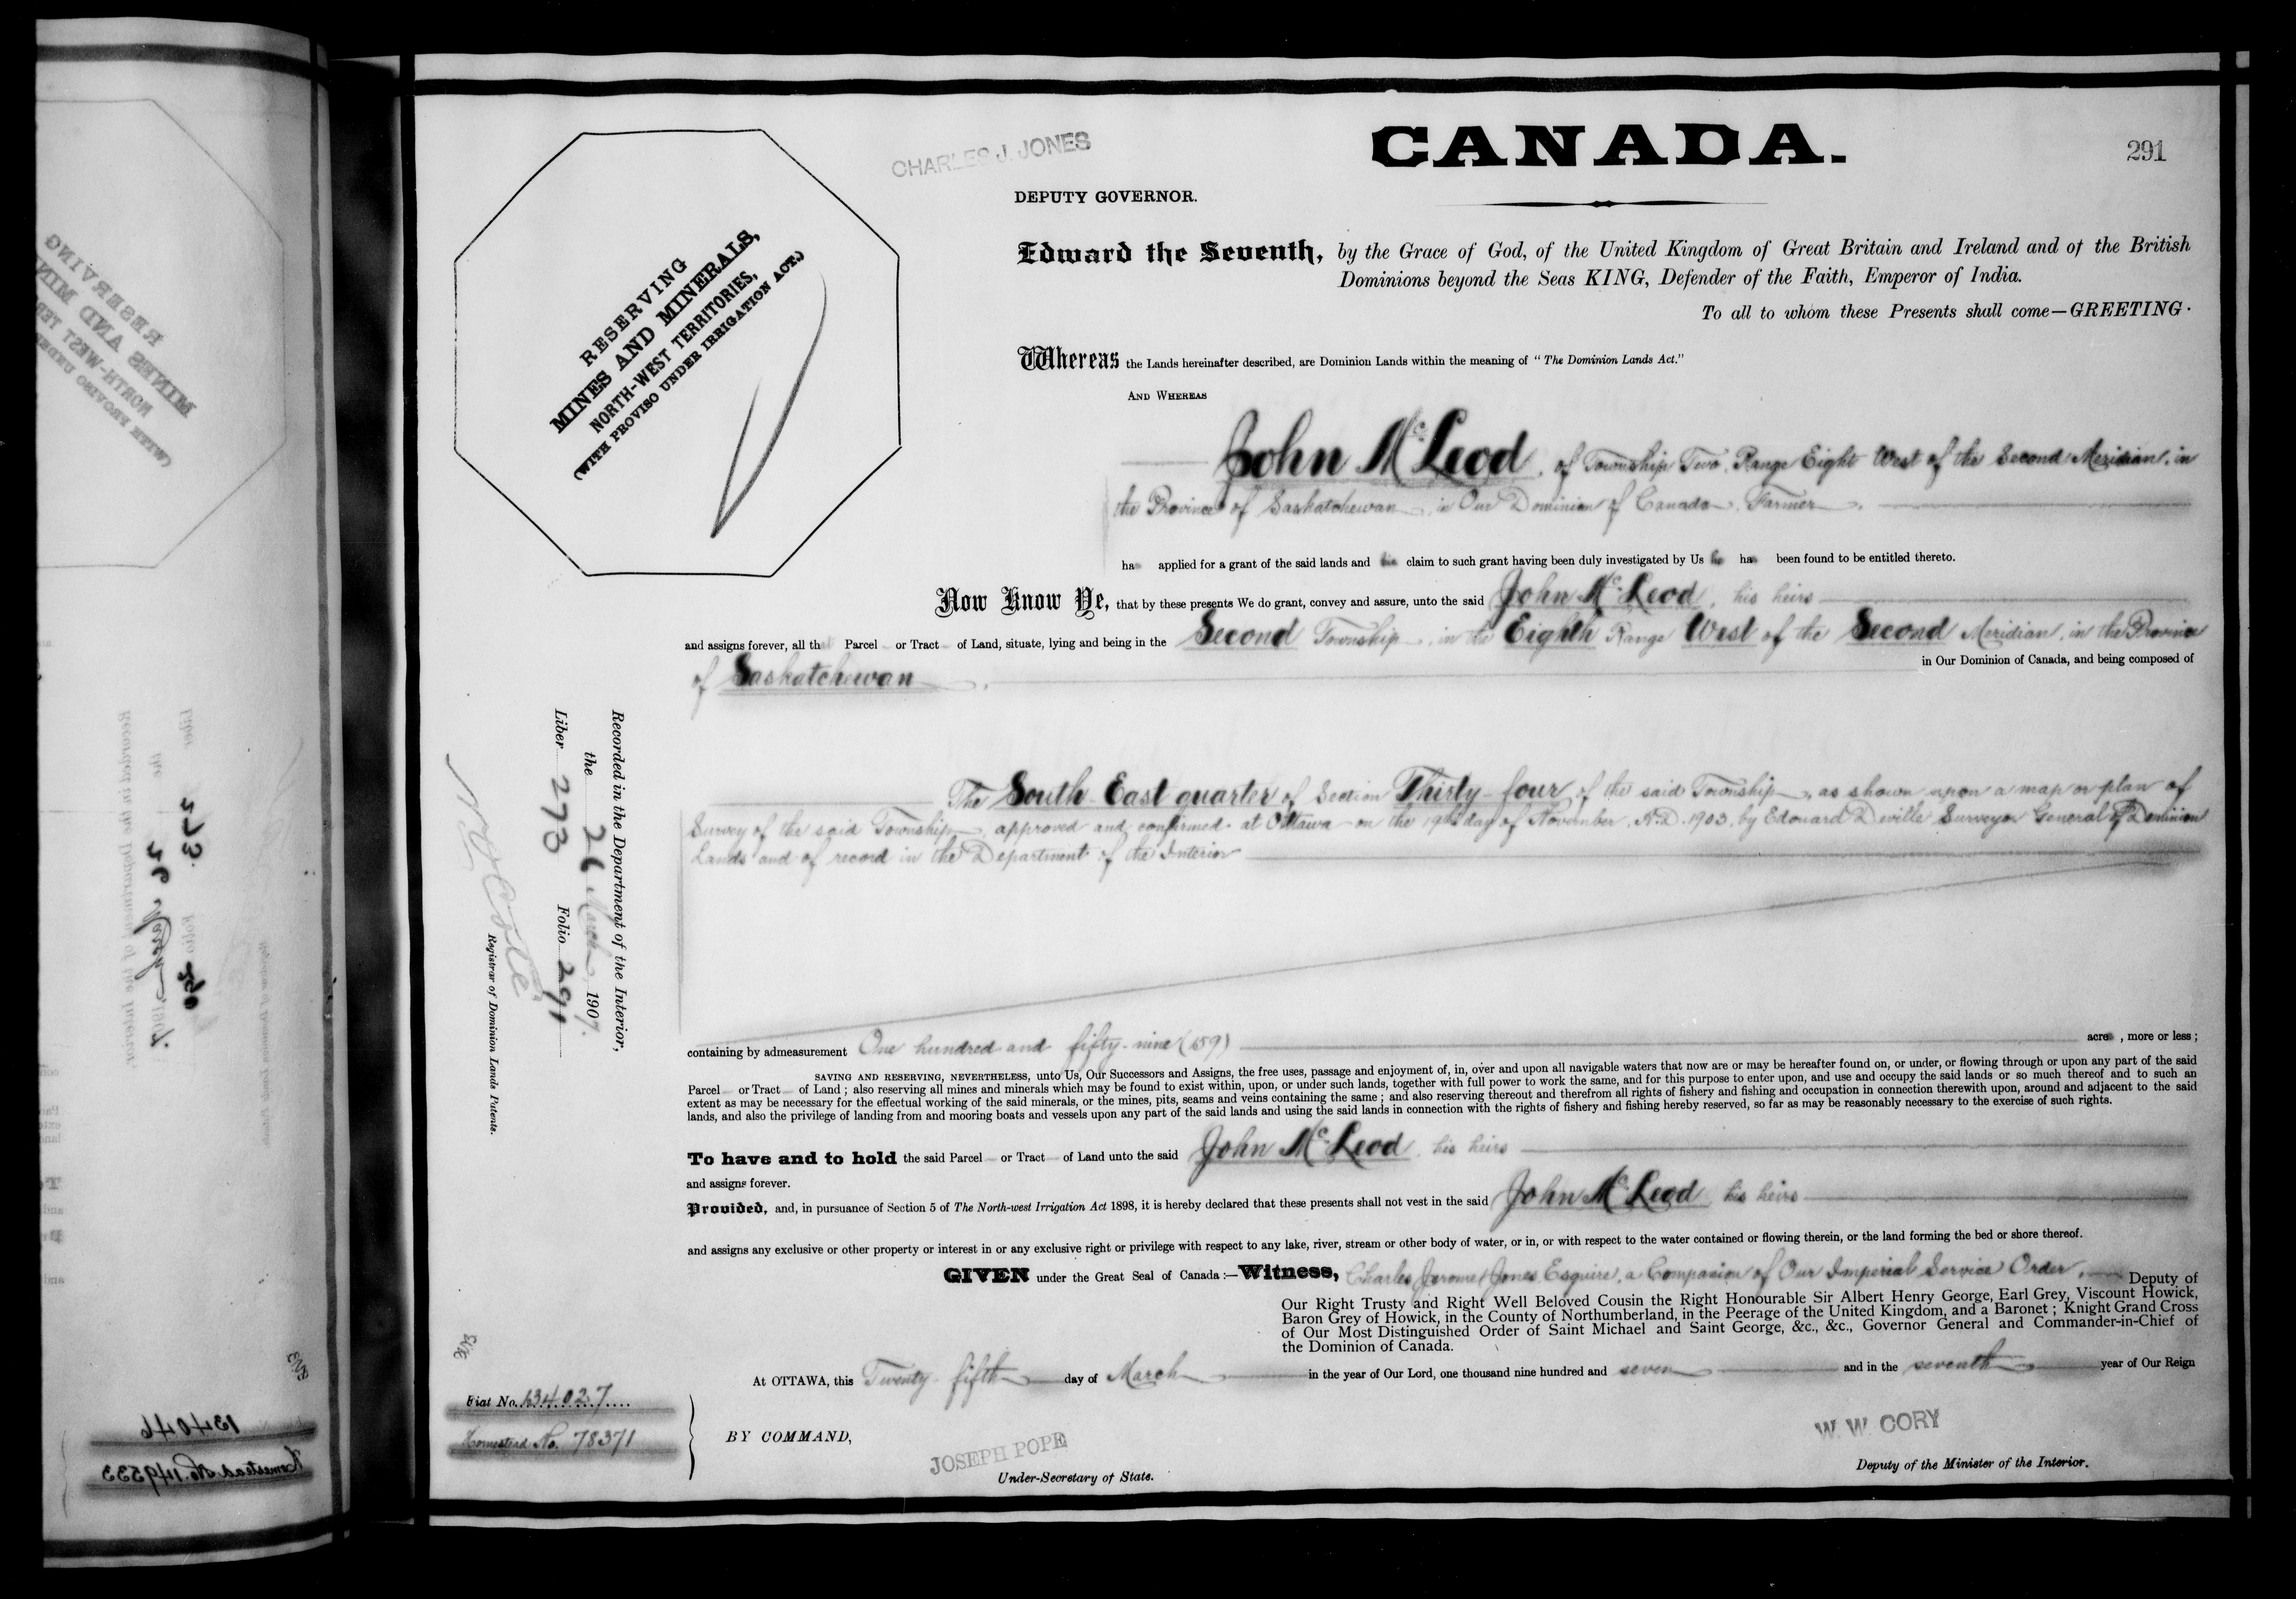 CHARLES J. JONES
CANADA.
291
DEPUTY GOVERNOR.
RESERVING
MINES AND MINERALS,
NORTH-WEST TERRITORIES,
(WITH PROVISO UNDER IRRIGATION ACT.)
Edward the Seventh, by the Grace of God, of the United Kingdom of Great Britain and Ireland and of the British
Dominions beyond the Seas KING, Defender of the Faith, Emperor of India.
To all to whom these Presents shall come—GREETING.
Whereas the Lands hereinafter described, are Dominion Lands within the meaning of "The Dominion Lands Act."
AND WHEREAS
John McLeod, of Township Two, Range Eight West of the Second Meridian, in
the Province of Saskatchewan, in Our Dominion of Canada, Farmer,
has applied for a grant of the said lands and his claim to such grant having been duly investigated by Us he has been found to be entitled thereto.
Now Know Ye, that by these presents We do grant, convey and assure, unto the said John McLeod, his heirs
and assigns forever, all that Parcel or Tract of Land, situate, lying and being in the Second Township, in the Eighth Range West of the Second Meridian, in the Province
of Saskatchewan, in Our Dominion of Canada, and being composed of
The South East quarter of Section Thirty-four of the said Township, as shown upon a map or plan of
Survey of the said Township, approved and confirmed at Ottawa on the 19th day of November, A.D. 1903, by Edouard Deville Surveyor General of Dominion
Lands and of record in the Department of the Interior
Recorded in the Department of the Interior,
the 26 March 1907.
Liber 273 Folio 291
N O Coté
Registrar of Dominion Lands Patents.
containing by admeasurement One hundred and fifty-nine (159) acres, more or less;
SAVING AND RESERVING, NEVERTHELESS, unto Us, Our Successors and Assigns, the free uses, passage and enjoyment of, in, over and upon all navigable waters that now are or may be hereafter found on, or under, or flowing through or upon any part of the said
Parcel or Tract of Land; also reserving all mines and minerals which may be found to exist within, upon, or under such lands, together with full power to work the same, and for this purpose to enter upon, and use and occupy the said lands or so much thereof and to such an
extent as may be necessary for the effectual working of the said minerals, or the mines, pits, seams and veins containing the same; and also reserving thereout and therefrom all rights of fishery and fishing and occupation in connection therewith upon, around and adjacent to the said
lands, and also the privilege of landing from and mooring boats and vessels upon any part of the said lands and using the said lands in connection with the rights of fishery and fishing hereby reserved, so far as may be reasonably necessary to the exercise of such rights.
To have and to hold the said Parcel or Tract of Land unto the said John McLeod, his heirs
and assigns forever.
Provided, and, in pursuance of Section 5 of The North-west Irrigation Act 1898, it is hereby declared that these presents shall not vest in the said John McLeod, his heirs
and assigns any exclusive or other property or interest in or any exclusive right or privilege with respect to any lake, river, stream or other body of water, or in, or with respect to the water contained or flowing therein, or the land forming the bed or shore thereof.
GIVEN under the Great Seal of Canada:—Witness, Charles Jerome Jones, Esquire, a Companion of Our Imperial Service Order, Deputy of
Our Right Trusty and Right Well Beloved Cousin the Right Honourable Sir Albert Henry George, Earl Grey, Viscount Howick,
Baron Grey of Howick, in the County of Northumberland, in the Peerage of the United Kingdom, and a Baronet; Knight Grand Cross
of Our Most Distinguished Order of Saint Michael and Saint George, &c., &c., Governor General and Commander-in-Chief of
the Dominion of Canada.
At OTTAWA, this Twenty-fifth day of March in the year of Our Lord, one thousand nine hundred and seven and in the seventh year of Our Reign
Fiat No. 134027
Homestead No. 78371
BY COMMAND,
JOSEPH POPE
Under-Secretary of State.
W. W. CORY
Deputy of the Minister of the Interior.